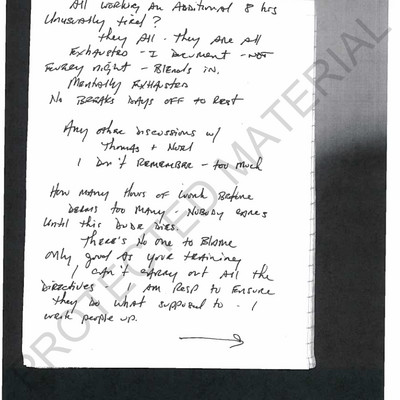 All working an additional 8 hrs
Unusually tired?
They all - they are all
Exhausted - I document - not
every night - Blends in.
Mentally Exhausted
No BREAKS DAYS OFF TO REST
Any other discussions w/
Thomas + Noel
I Don't REMEMBER - too much
How many Hours of work Before
too many - NOBODY CARES
Until this DUDE DIES.
There's No one to Blame
Only good as your training
I CAN'T CARRY out All the
Directives - I AM RESP to Ensure
they DO WHAT supposed to - I
work people up.
PROTECTED MATERIAL